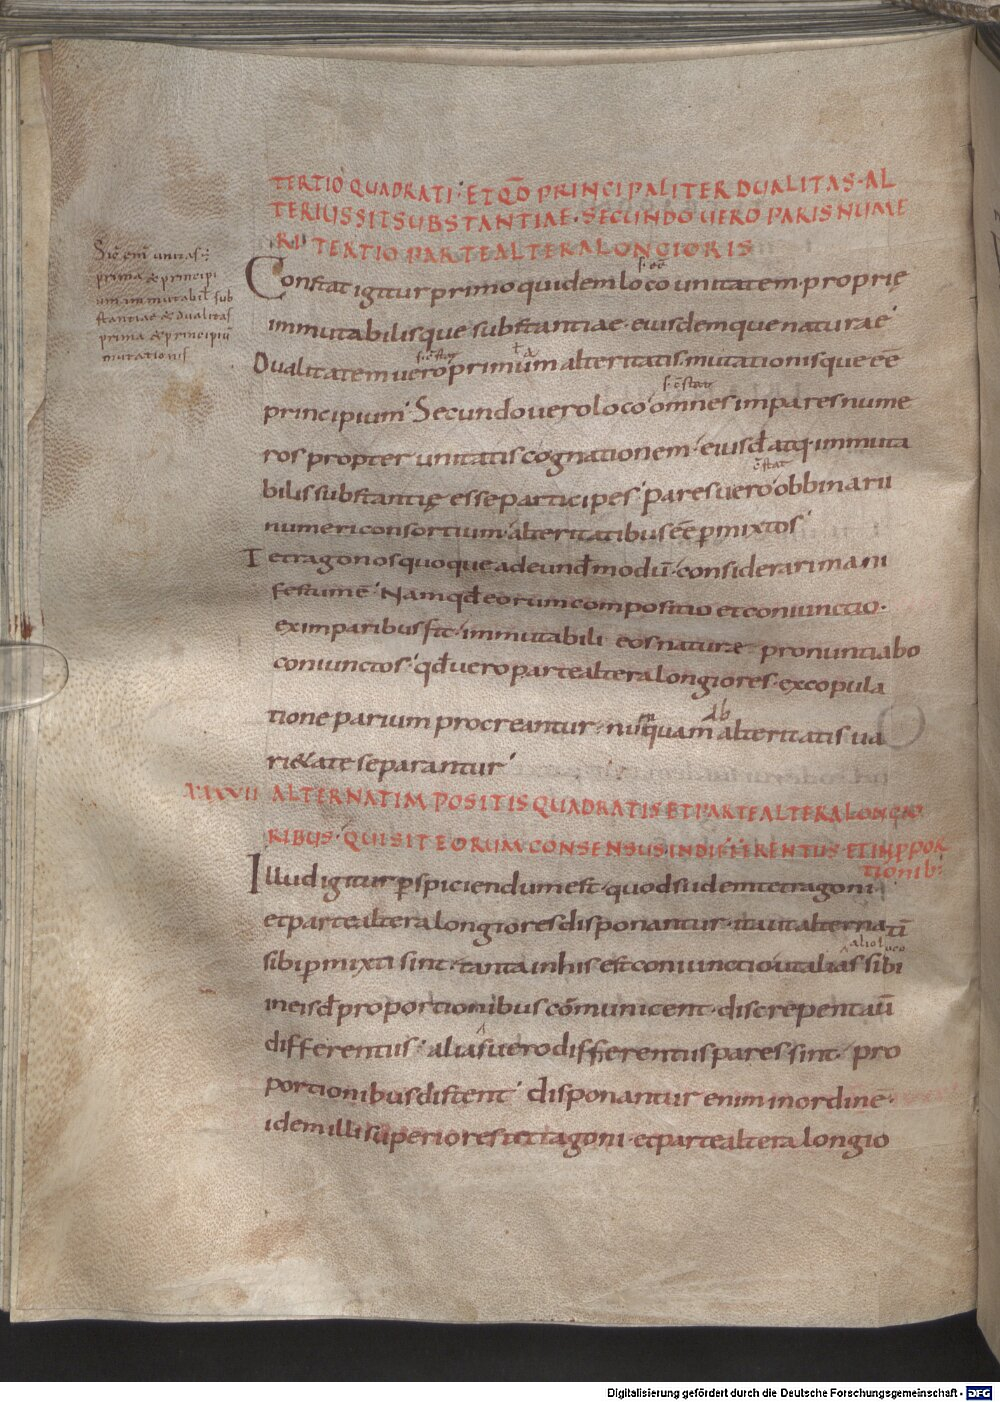 TERTIO QUADRATI· ETQD̅ PRINCIPALITER DUALITAS·AL
TERIUS SIT SUBSTANTIAE·SECUNDO UERO PARIS NUME
RI· TERTIO PARTE ALTERA LONGIORIS
Sic eni̅ unitas
prima & principi
um immutabil sub
stantiae & dualitas
prima & principiu̅
mutationis
Constat igitur primo quidem loco unitatem·proprię
immutabilisque substantiae·eiusdemque naturae
Dualitatem uero primum alteritatis·mutationisque ee̅
principium· Secundo uero loco omnes impares nume
ros propter unitatis cognationem· eiusd̅ atq· immuta
bilis substantię esse participes· Pares uero ob binarii
numeri consortium· alteritatibus ee̅ pmixtos·
Tetragonos quoque ad eund̅ modu̅·considerari mani
festum e̅· Nam qd̅ eorum compositio et coniunctio·
ex imparibus fit· immutabili eos naturae pronuntiabo
coniunctos· qd̅ uero parte altera longiores·ex copula
tione parium procreantur·nusquam ab alteritatis ua
ri&ate separantur·
XXXVII ALTERNATIM POSITIS QUADRATIS ET PARTE ALTERA LONGIO
RIBUS· QUI SIT EORUM CONSENSUS IN DIFFERENTIIS· ET IN PPOR
tionib:
Illud igitur pspiciendum est·quod si idem tetragoni·
et parte altera longiores disponantur·ita ut alternati̅
sibi pmixti sint·tanta in his est coniunctio ut alias sibi
in eisd̅ proportionibus co̅municent·discrepent au̅
differentiis· alias uero differentiis pares sint· pro
portionibus distent· disponantur enim in ordine̅·
idem illi superiores tetragoni·et parte altera longio
Digitalisierung gefördert durch die Deutsche Forschungsgemeinschaft - DFG